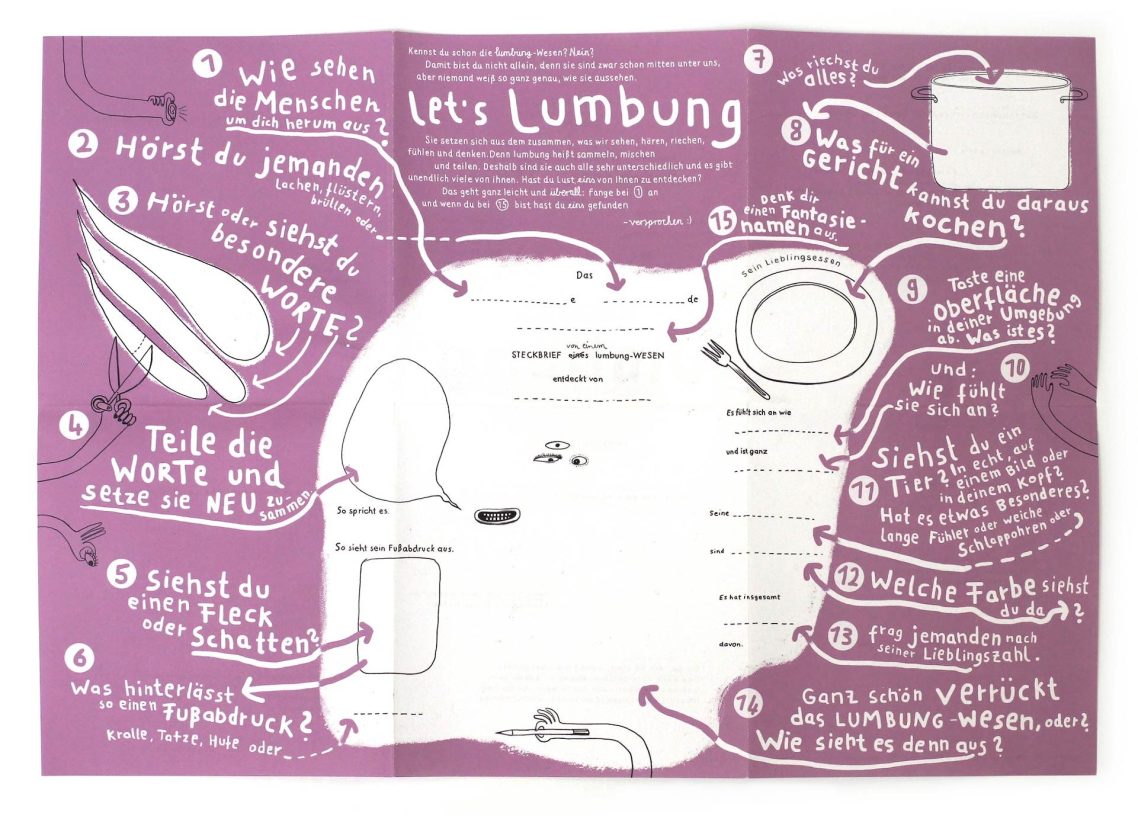 Kennst du schon die lumbung-Wesen? Nein?
Damit bist du nicht allein, denn sie sind zwar schon mitten unter uns,
aber niemand weiß so ganz genau, wie sie aussehen.
Let's Lumbung
Sie setzen sich aus dem zusammen, was wir sehen, hören, riechen,
fühlen und denken. Denn lumbung heißt sammeln, mischen
und teilen. Deshalb sind sie auch alle sehr unterschiedlich und es gibt
unendlich viele von ihnen. Hast du Lust eins von ihnen zu entdecken?
Das geht ganz leicht und überall: Fange bei 1 an
und wenn du bei 15 bist hast du eins gefunden
-versprochen :)
1 Wie sehen
die Menschen
um dich herum aus?
2 Hörst du jemanden
lachen, flüstern,
brüllen oder
3 Hörst oder siehst du
besondere
WORTE?
4 Teile die
WORTE und
setze sie NEU zu-
sammen
5 Siehst du
einen Fleck
oder Schatten?
6 Was hinterlässt
so einen Fußabdruck?
Kralle, Tatze, Hufe oder
7 Was riechst du
alles?
8 Was für ein
Gericht kannst du daraus
kochen?
9 Taste eine
Oberfläche
in deiner Umgebung
ab. Was ist es?
10 und:
Wie fühlt
sie sich an?
11 Siehst du ein
Tier? In echt, auf
einem Bild oder
in deinem Kopf?
Hat es etwas Besonderes?
lange Fühler oder weiche
Schlappohren oder
12 Welche Farbe siehst
du da ?
13 frag jemanden nach
seiner Lieblingszahl.
14 Ganz schön verrückt
das LUMBUNG-Wesen, oder?
Wie sieht es denn aus?
15 Denk dir
einen Fantasie-
namen aus.
Das
e de
von einem
STECKBRIEF eines lumbung-WESEN
entdeckt von
Sein Lieblingsessen
So spricht es.
So sieht sein Fußabdruck aus.
Es fühlt sich an wie
und ist ganz
Seine
sind
Es hat insgesamt
davon.